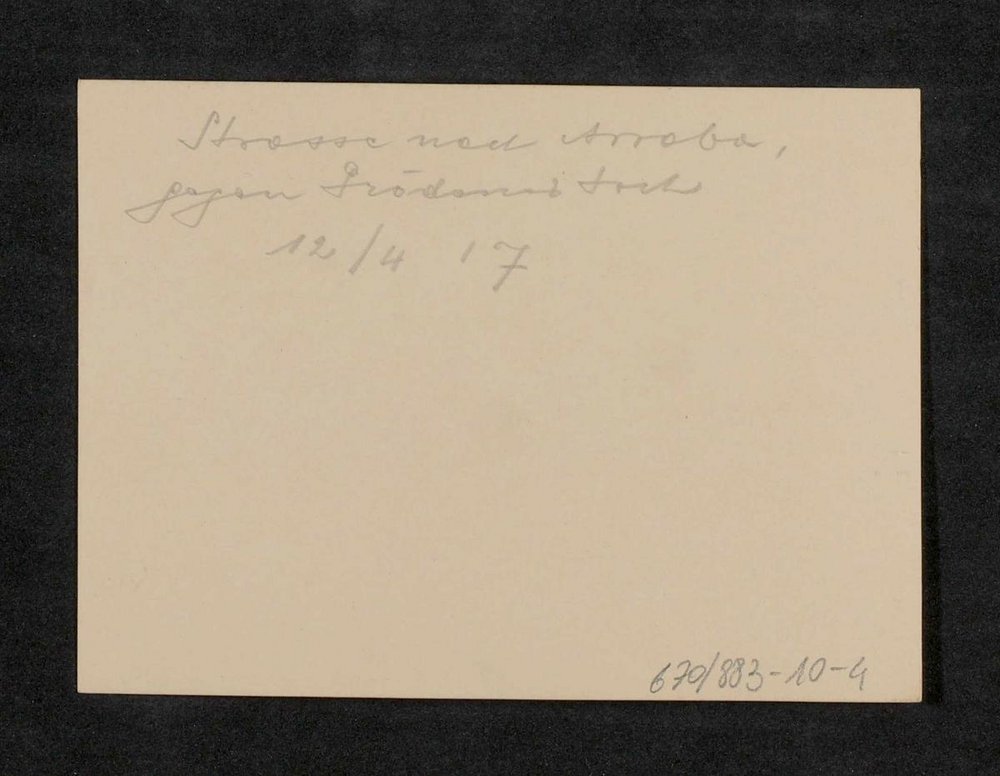 Strasse nach Arraba,
gegen Grödener Joch
12/4 '17
670/883-10-4